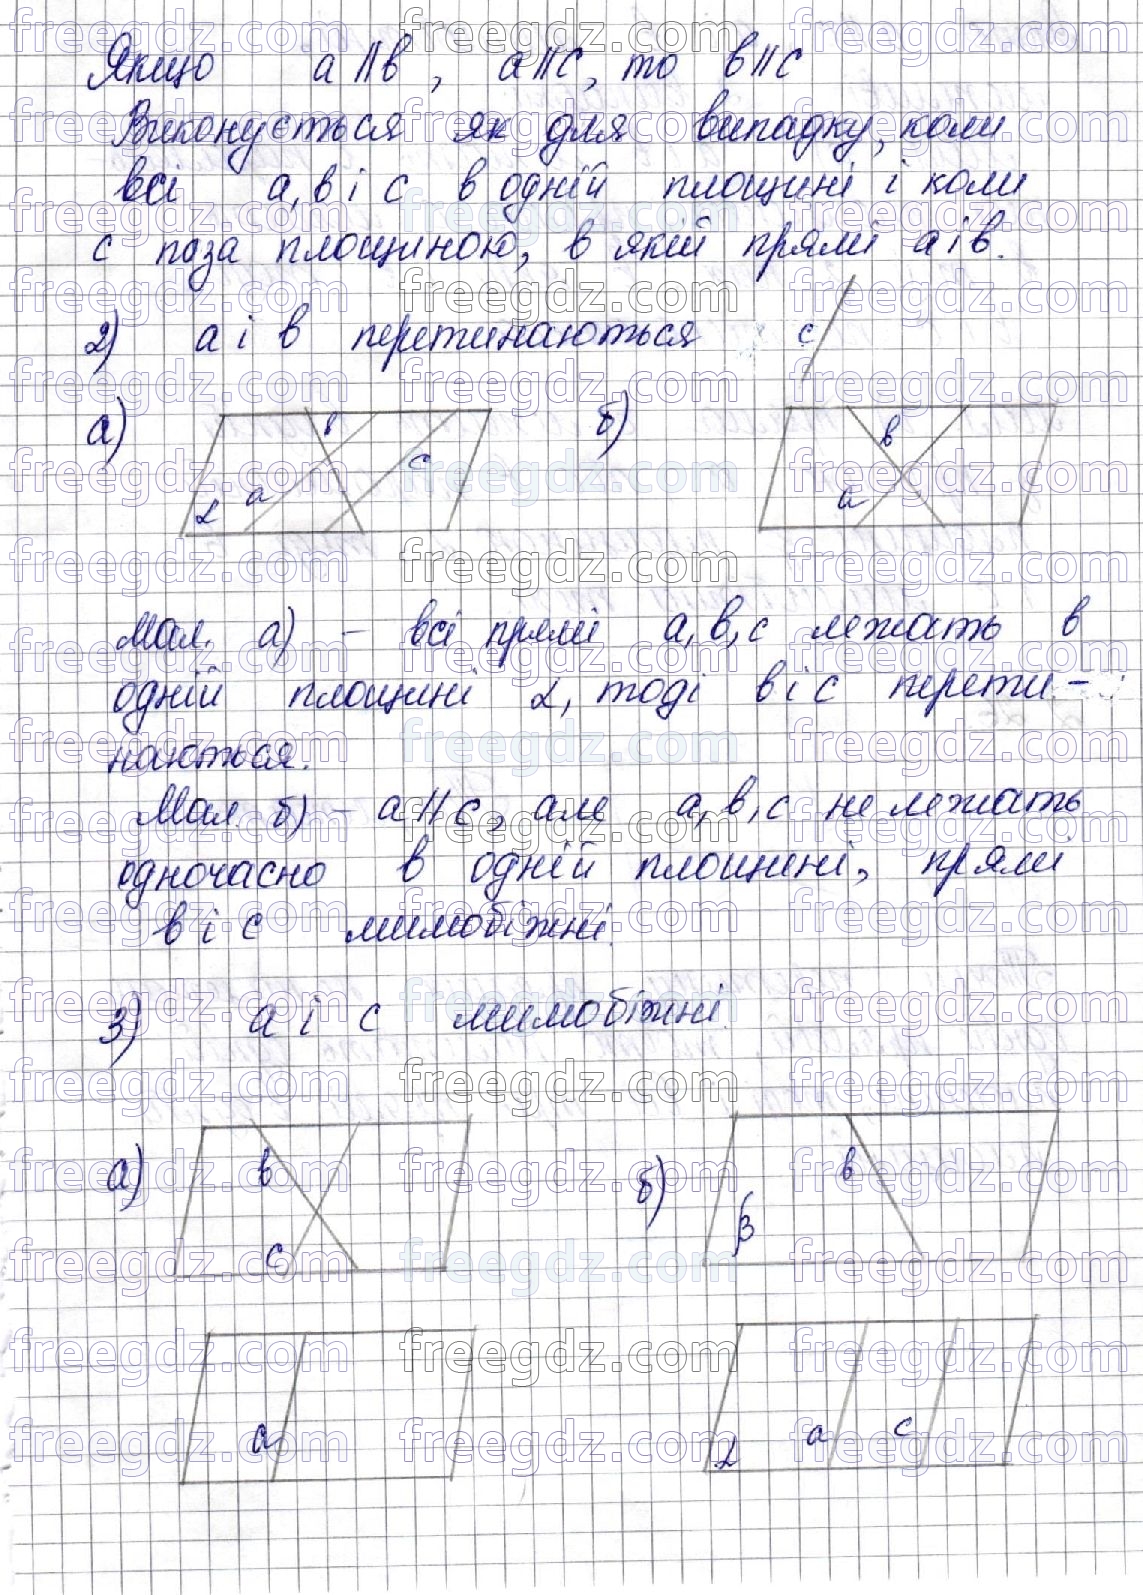 Якщо a || b, a || c, то b || c
Виконується як для випадку, коли
всі a, b і c в одній площині і коли
c поза площиною, в якій прямі a і b.
2) a і b перетинаються
c
а)
б)
b
c
a
α
b
a
Мал. а) – всі прямі a, b, c лежать в
одній площині α, тоді b і c перети-
наються.
Мал. б) – a || c, але a, b, c не лежать
одночасно в одній площині, прямі
b і c мимобіжні.
3) a і c мимобіжні.
а)
b
c
б)
b
β
a
α
a
c
freegdz.com